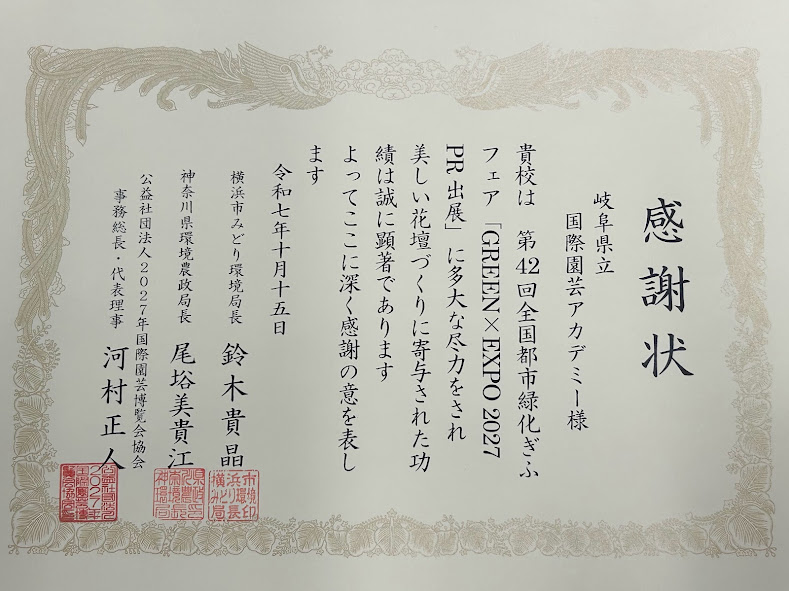 感謝状
岐阜県立
国際園芸アカデミー様
貴校は　第42回全国都市緑化ぎふ
フェア「GREEN×EXPO 2027
PR出展」に多大な尽力をされ
美しい花壇づくりに寄与された功
績は誠に顕著であります
よってここに深く感謝の意を表し
ます
令和七年十月十五日
横浜市みどり環境局長　鈴木貴晶
神奈川県環境農政局長　尾㟢美貴江
公益社団法人2027年国際園芸博覧会協会
事務総長・代表理事　河村正人